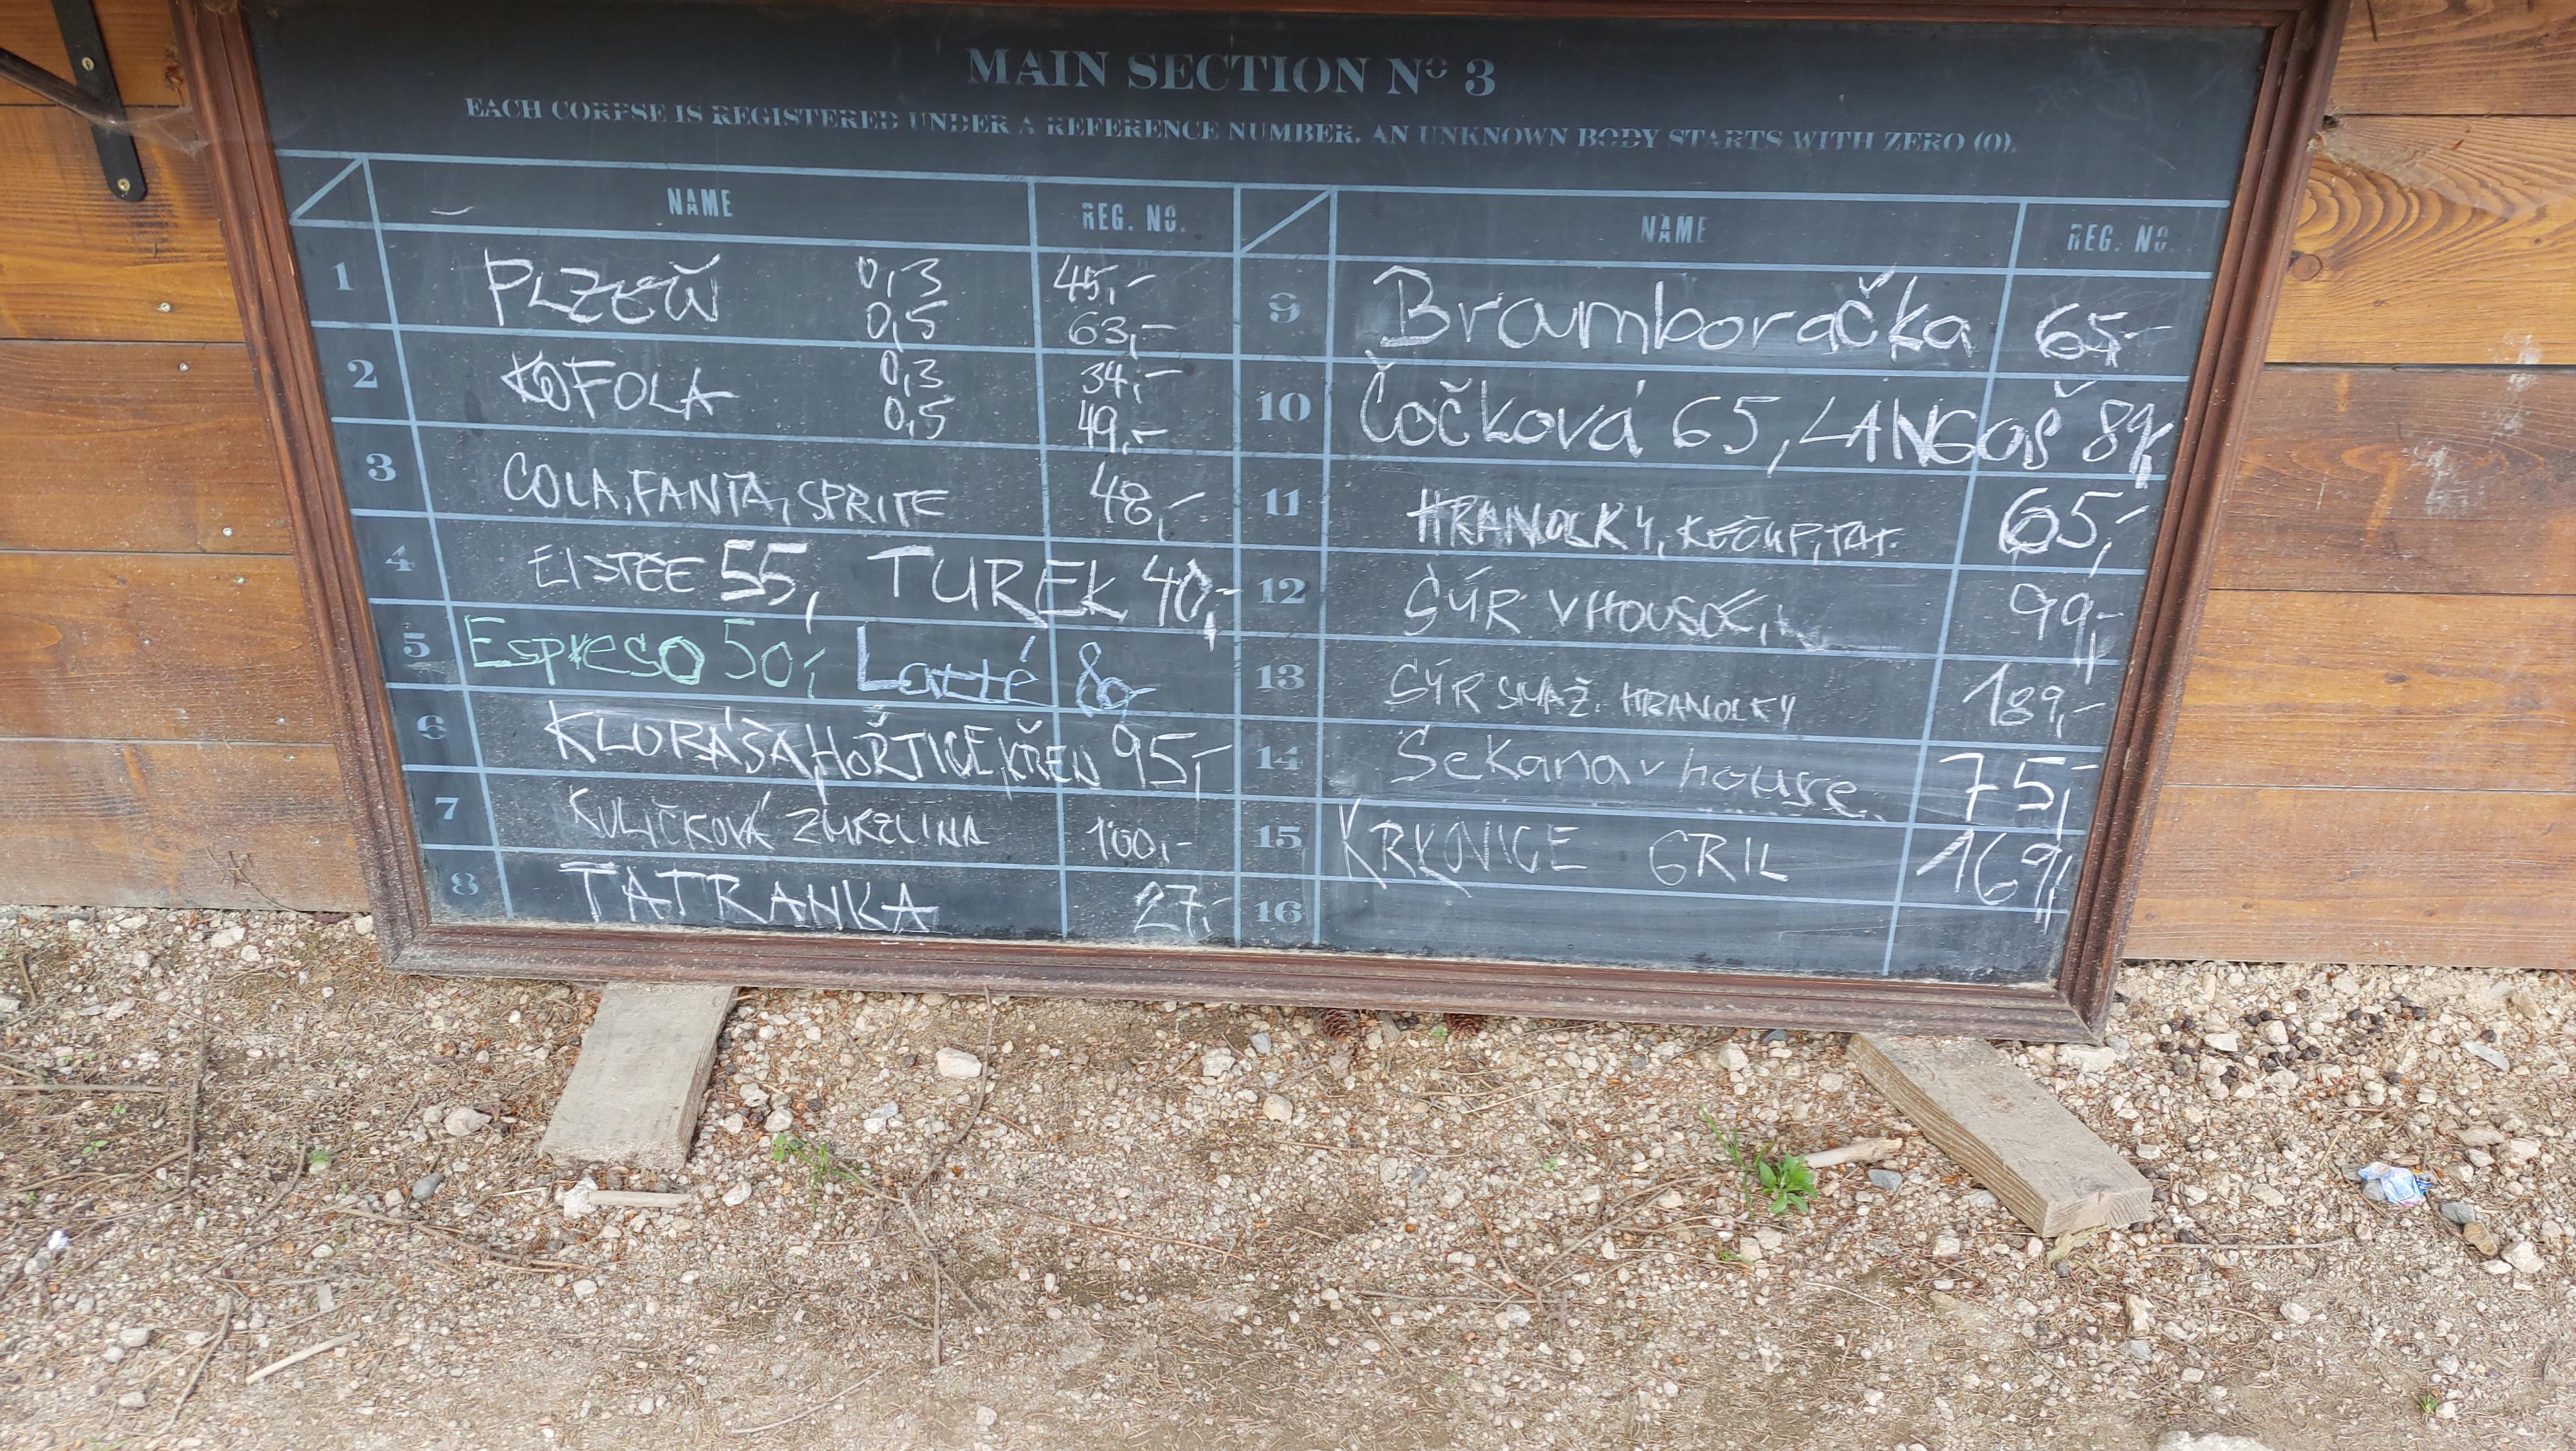 MAIN SECTION Nº 3
EACH CORPSE IS REGISTERED UNDER A REFERENCE NUMBER. AN UNKNOWN BODY STARTS WITH ZERO (0).
NAME REG. NO.
1 PLZEŇ 0,3 45,-
0,5 63,-
2 KOFOLA 0,3 34,-
0,5 49,-
3 COLA, FANTA, SPRITE 48,-
4 EISTEE 55, TUREK 40,-
5 Espreso 50,- Latté 80,-
6 KLOBÁSA, HOŘTICE, KŘEN 95,-
7 KULIČKOVÁ ZMRZLINA 100,-
8 TATRANKA 27,-
NAME REG. NO.
9 Bramboračka 65,-
10 Čočková 65, LANGOŠ 89,
11 HRANOLKY, KEČUP, TAT. 65,-
12 SÝR V HOUSCE, 99,-
13 SÝR SMAŽ. HRANOLKY 189,-
14 Sekana v house 75,-
15 KRKOVICE GRIL 169,
16